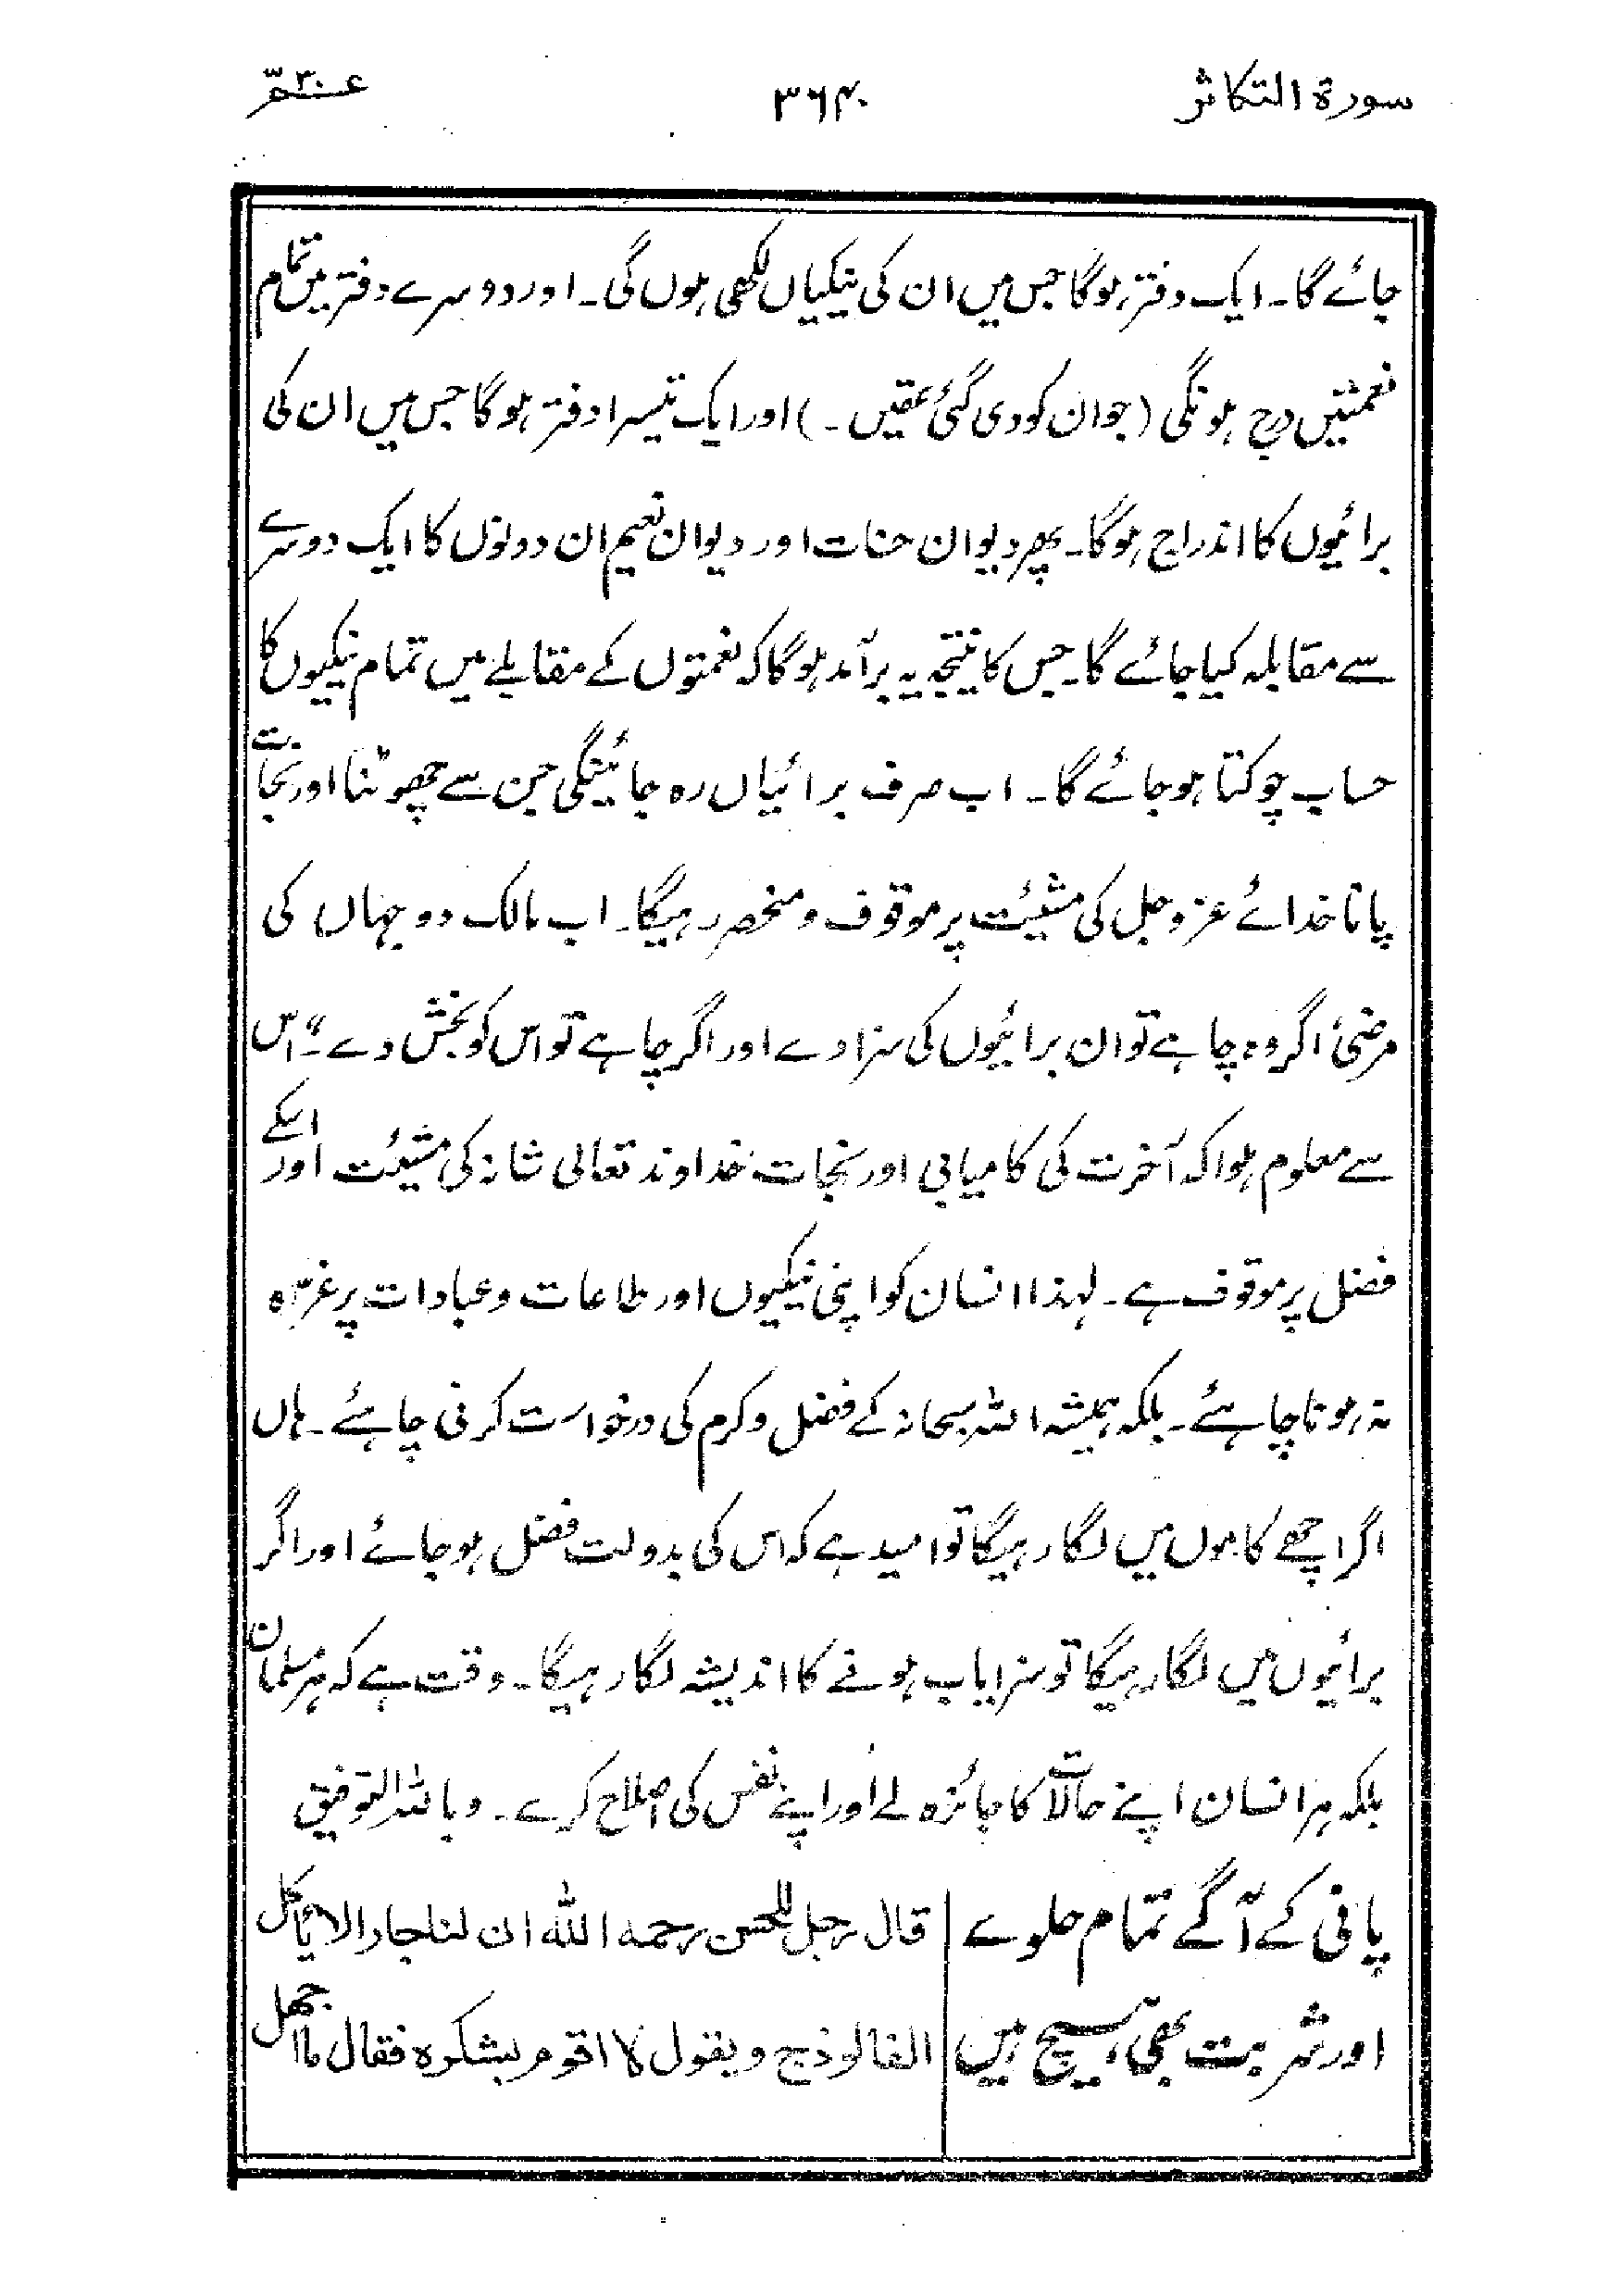 سورۃ التکاثر ۳۶۴ عمّ ۳۰
جائے گا۔ ایک دفتر ہوگا جس میں ان کی نیکیاں لکھی ہوں گی۔ اور دوسرے دفتر میں تمام
نعمتیں درج ہونگی (جو ان کو دی گئی تھیں۔) اور ایک تیسرا دفتر ہوگا جس میں ان کی
برائیوں کا اندراج ہوگا۔ پھر دیوان حسنات اور دیوان نعیم ان دونوں کا ایک دوسرے
سے مقابلہ کیا جائے گا۔ جس کا نتیجہ یہ برآمد ہوگا کہ نعمتوں کے مقابلے میں تمام نیکیوں کا
حساب چوکتا ہو جائے گا۔ اب صرف برائیاں رہ جائینگی جن سے چھوٹنا اور نجات
پانا خدائے عز و جل کی مشیئت پر موقوف و منحصر رہیگا۔ اب مالک دو جہاں کی
مرضی اگر وہ چاہے تو ان برائیوں کی سزا دے اور اگر چاہے تو اس کو بخش دے"۔ اس
سے معلوم ہوا کہ آخرت کی کامیابی اور نجات خداوند تعالی شانہ کی مشیئت اور اسکے
فضل پر موقوف ہے۔ لہذا انسان کو اپنی نیکیوں اور طاعات و عبادات پر غرّہ
نہ ہونا چاہئے۔ بلکہ ہمیشہ اللہ سبحانہ کے فضل و کرم کی درخواست کرنی چاہئے۔ ہاں
اگر اچھے کاموں میں لگا رہیگا تو امید ہے کہ اس کی بدولت فضل ہو جائے اور اگر
برائیوں میں لگا رہیگا تو سزایاب ہونے کا اندیشہ لگا رہیگا۔ وقت ہے کہ ہر مسلمان
بلکہ ہر انسان اپنے حالات کا جائزہ لے اور اپنے نفس کی اصلاح کرے۔ وباللہ التوفیق
پانی کے آگے تمام حلوے | قال رجل للحسن رحمه الله ان لنا جارا لا یأکل
اور شربت بھی ہیچ ہیں | الفالوذج ویقول لا اقوم بشکره فقال ما اجهل